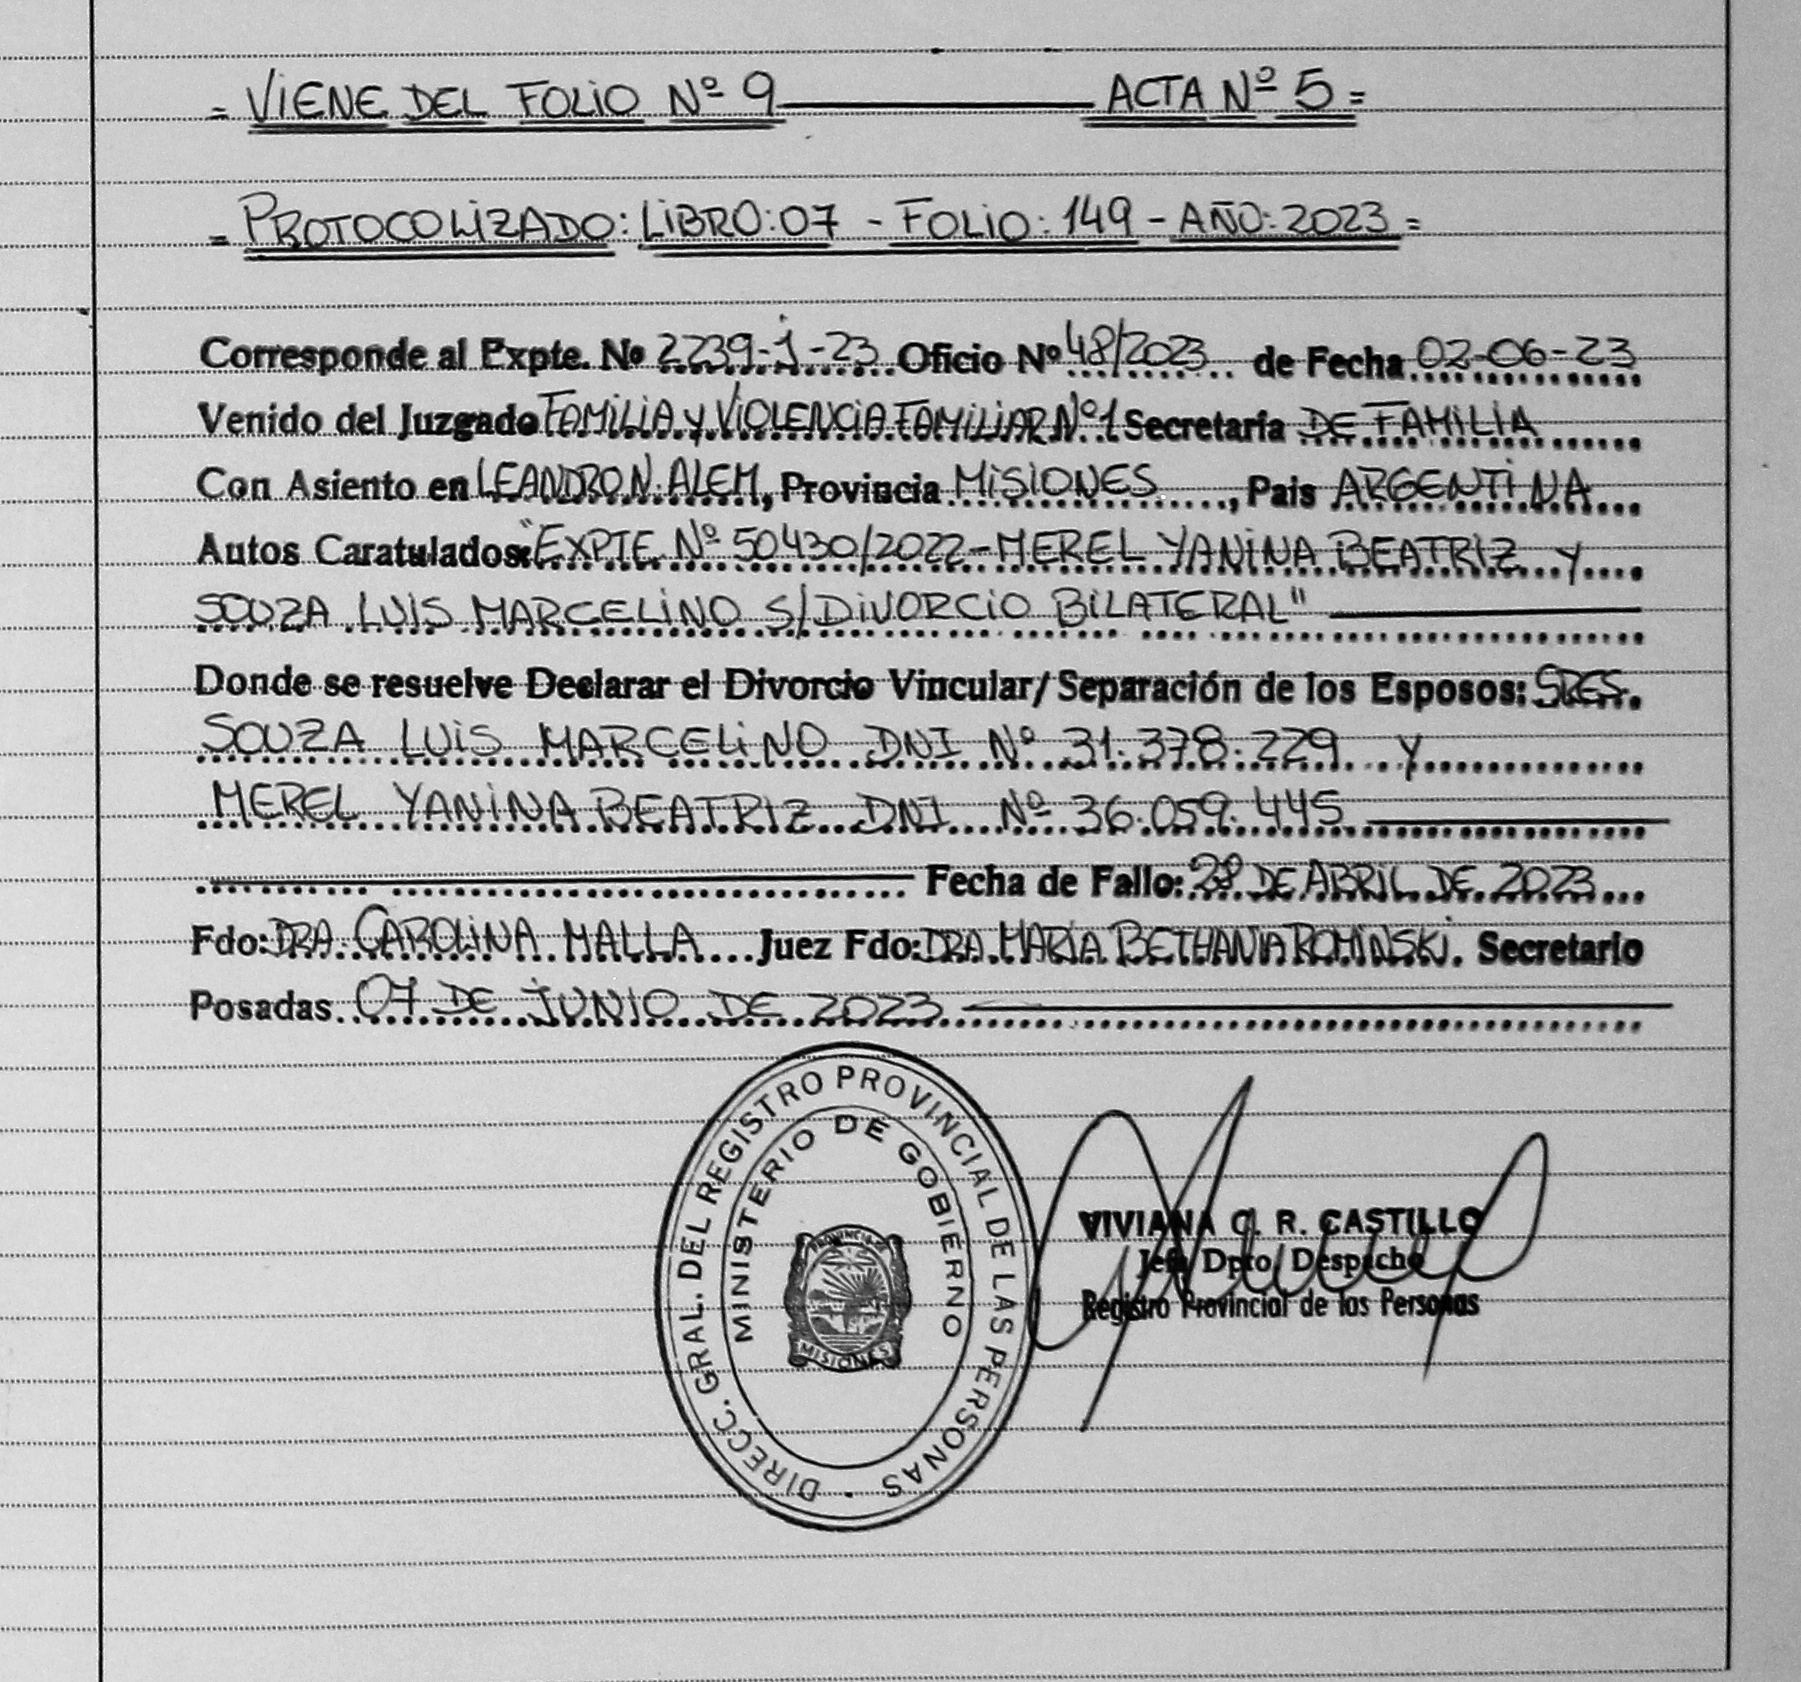 = VIENE DEL FOLIO Nº 9 ACTA Nº 5 =
= PROTOCOLIZADO: LIBRO: 07 - FOLIO: 149 - AÑO: 2023 =
Corresponde al Expte. Nº 2239-1-23 Oficio Nº 48/2023 de Fecha 02-06-23
Venido del Juzgado FAMILIA Y VIOLENCIA FAMILIAR Nº 1 Secretaría DE FAMILIA
Con Asiento en LEANDRO N. ALEM, Provincia MISIONES, Pais ARGENTINA
Autos Caratulados: "EXPTE Nº 50430/2022-MEREL YANINA BEATRIZ Y
SOUZA LUIS MARCELINO S/DIVORCIO BILATERAL"
Donde se resuelve Declarar el Divorcio Vincular/Separación de los Esposos: SRES.
SOUZA LUIS MARCELINO DNI Nº 31.378.229 Y
MEREL YANINA BEATRIZ DNI Nº 36.059.445
Fecha de Fallo: 28 DE ABRIL DE 2023
Fdo: DRA. CAROLINA MALLA Juez Fdo: DRA. MARIA BETHANIA ROMINSKI. Secretario
Posadas 07 DE JUNIO DE 2023
DIRECC. GRAL. DEL REGISTRO PROVINCIAL DE LAS PERSONAS
MINISTERIO DE GOBIERNO
MISIONES
VIVIANA C. R. CASTILLO
Jefa Dpto. Despacho
Registro Provincial de las Personas